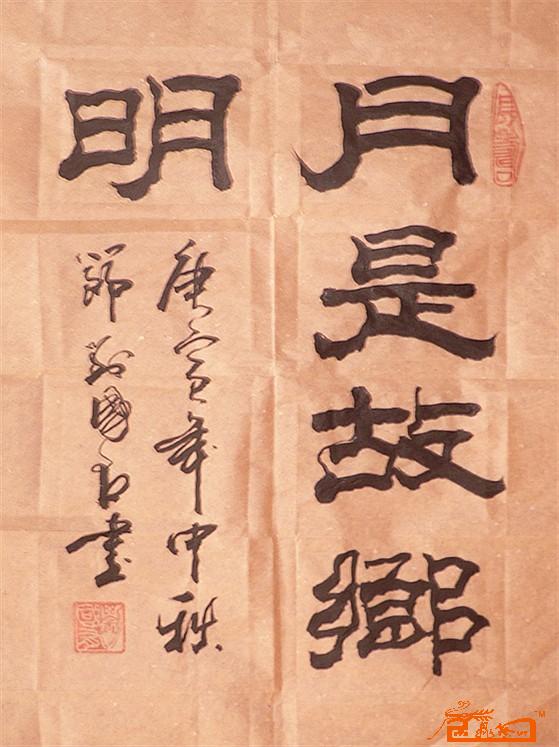 月是故鄉
明
庚寅年中秋
國書